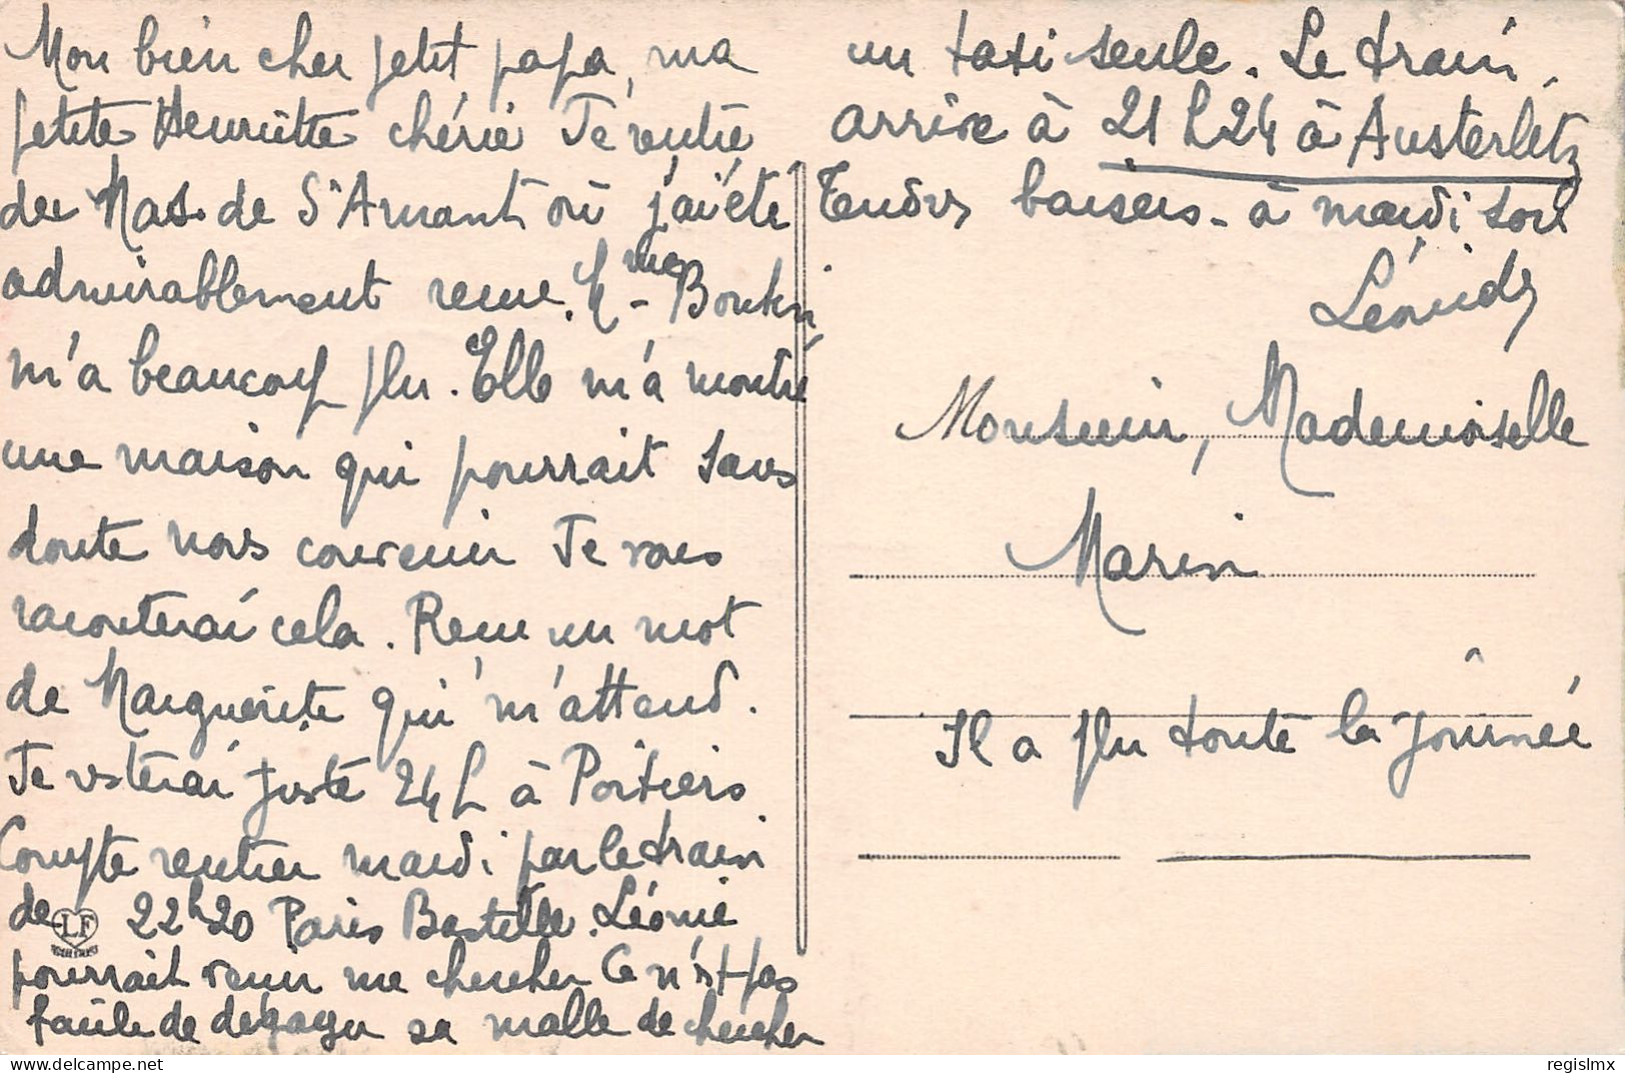 Mon bien cher petit papa, ma
petite Henriette chérie Je rentre
de Mas. de St Amant où j'ai été
admirablement reçue. Mme
m'a beaucoup plu. Elle m'a montré
une maison qui pourrait sans
doute nous convenir Je vous
raconterai cela. Reçu un mot
de Marguerite qui m'attend.
Je resterai juste 24 h à Poitiers
Compte rentrer mardi par le train
de 22h20 Paris Bastille. Léonie
pourrait venir me chercher Ce n'est pas
facile de dégager sa malle de chercher
LF
un taxi seule. Le train
arrive à 21 h 24 à Austerlitz
Tendres baisers - à mardi soir
Monsieur, Mademoiselle
Marin
Il a plu toute la journée
regislmx